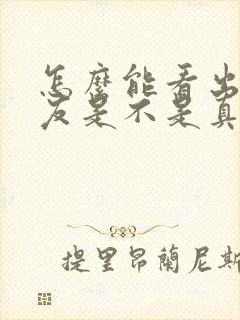 怎麼能看出
友是不是真
提里昂蘭尼斯